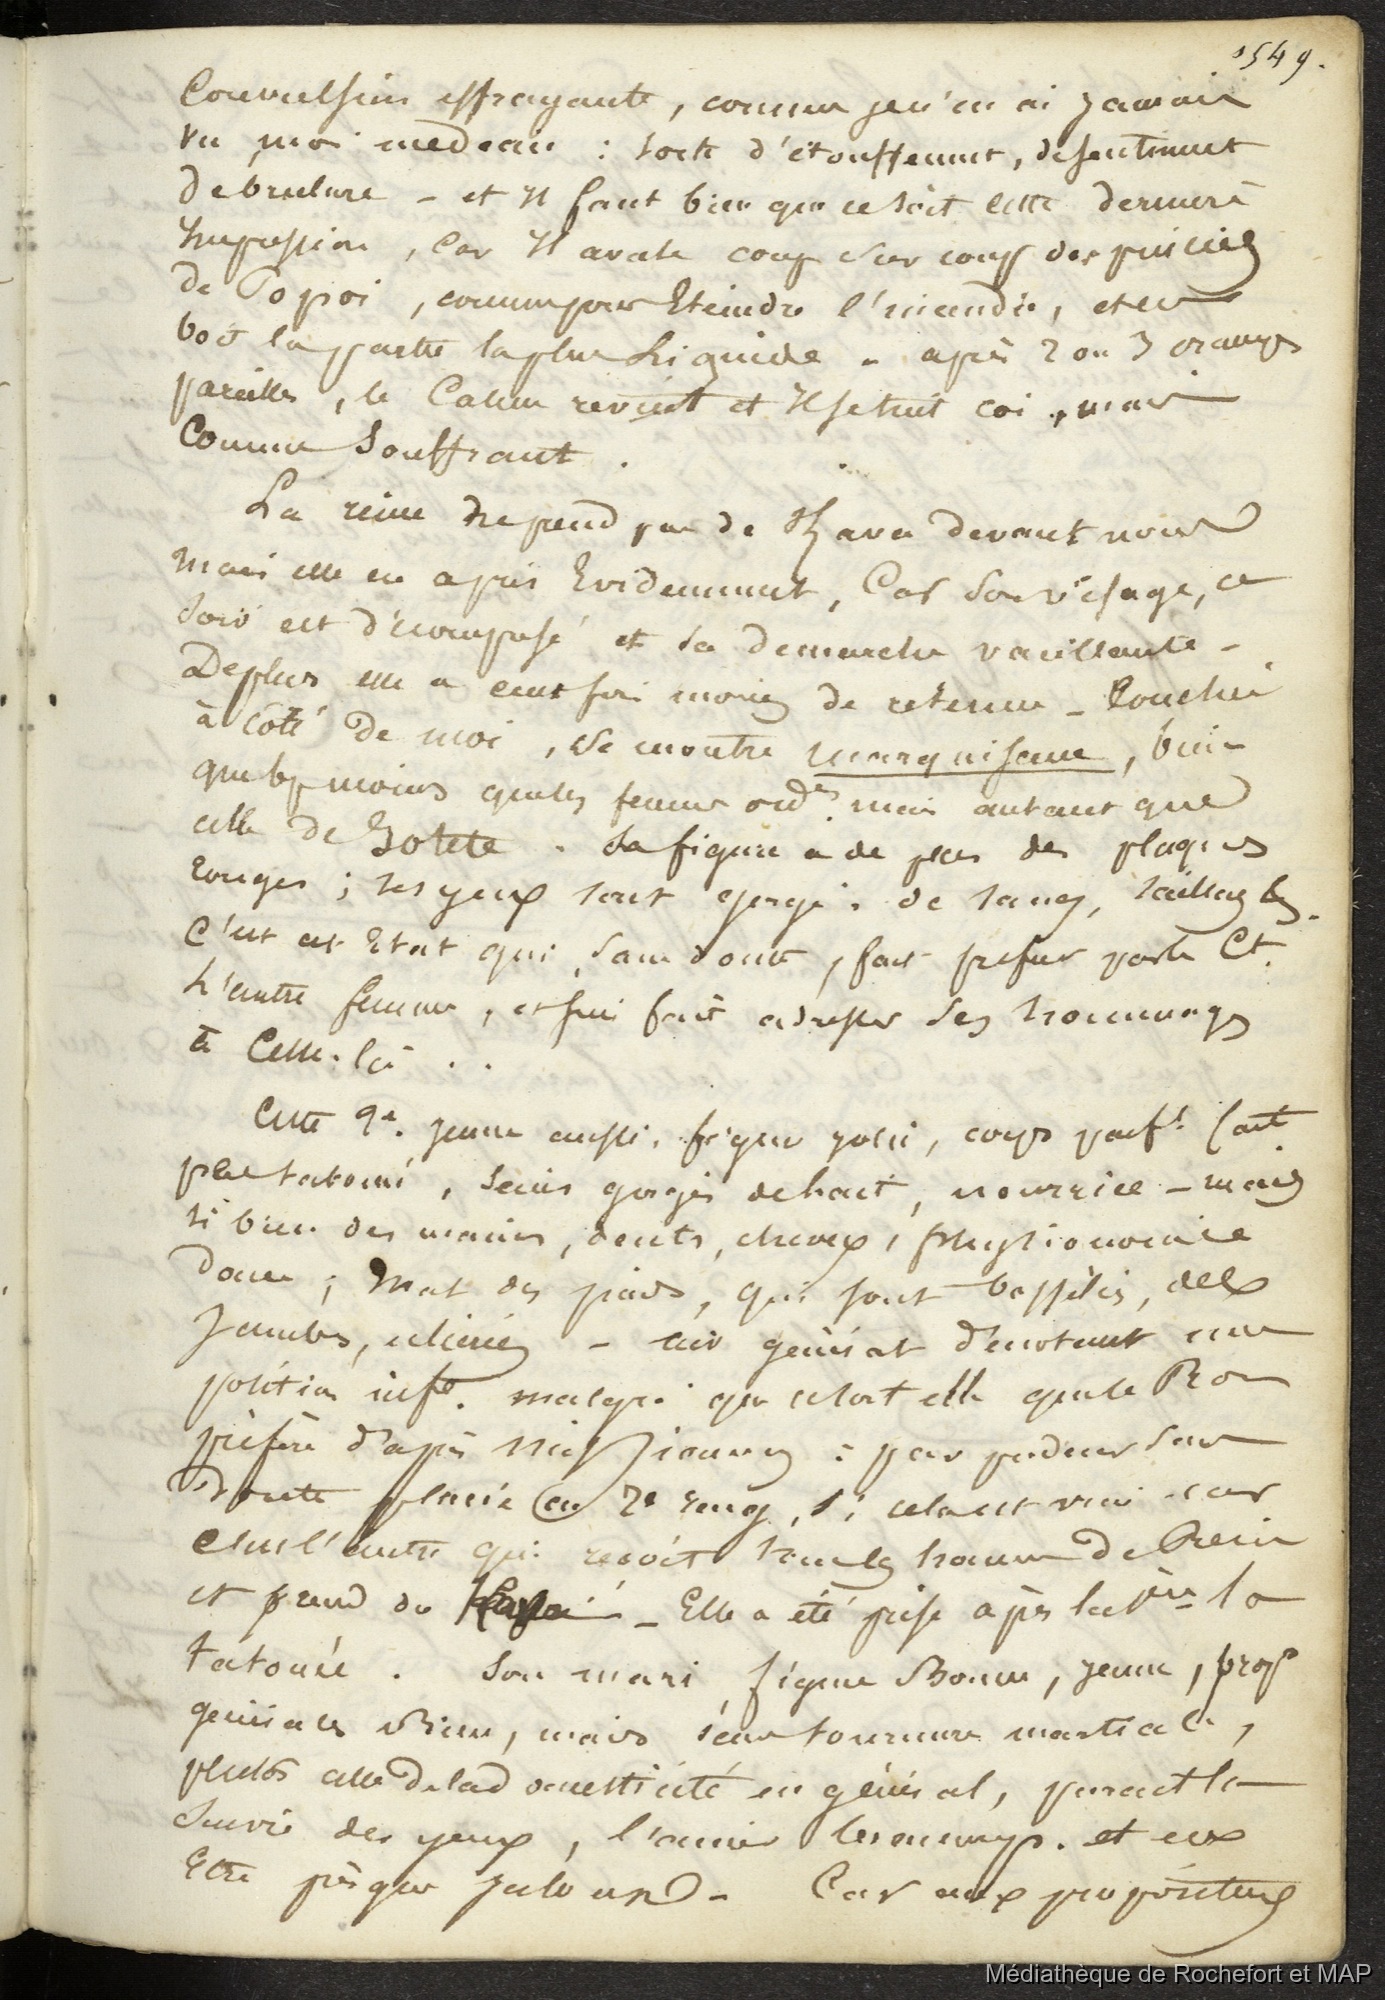 1549.
Convulsions effrayante, comme je n'en ai jamais
vu, moi medecin : sorte d'étouffement, de sentiment
de brulure - et Il faut bien que ce soit cette derniere
Impression, Car Il avale coup sur coup des
de Popoi, comme pour Eteindre l'incendie, et en
boit la partie la plus Liquide - après 2 ou 3 orages
pareilles, le Calme revient et Il se tient coi, mais
Comme Souffrant.
La reine ne prend pas de Kava devant nous
mais elle en a pris Evidemment, Car son visage, ce
soir est décomposé et sa demarche vacillante -
De plus elle a cent fois moins de retenue - Couchée
à côté de moi, se montre marquisane, bien
que moins que les femmes ord.es mais autant que
celle de . Sa figure a de plus des plaques
rouges ; ses yeux sont gorgés de sang, saillants.
C'est cet Etat qui, sans doute, fait preferer par le Ct.
L'autre femme, et lui fait adresser ses hommages
à Celle-là . .
Cette 2e. jeune aussi, figure jolie, corps parft. fait
peu tatoué, seins gorgés de lait, nourrice - mais
si bien des mains, dents, cheveux, physionomie
douce ; Mal des pieds, qui sont , et des
Jambes, - air général dénotant une
position infre. malgré que ce soit elle que le Roi
préfère d'après : par pudeur sans
doute placée au 2e rang, si cela est vrai car
c'est l'autre qui reçoit tous les honneurs de Reine
et prend du Kava - Elle a été prise après la 1ère la
tatouée. Son mari, figure Bonne, jeune, prop
generales Bien, mais sans tournure martiale,
plutôt celle de la domesticité en général, parait la
Suivre des yeux, l'aimer et en
Etre presque jaloux - Car aux propositions